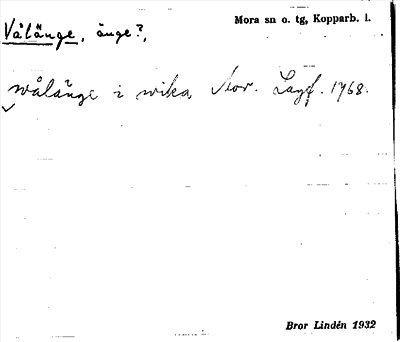 Vålänge, änge?,
Mora sn o. tg, Kopparb. l.
wålänge i wika Stor. Lagf. 1768.
Bror Lindén 1932